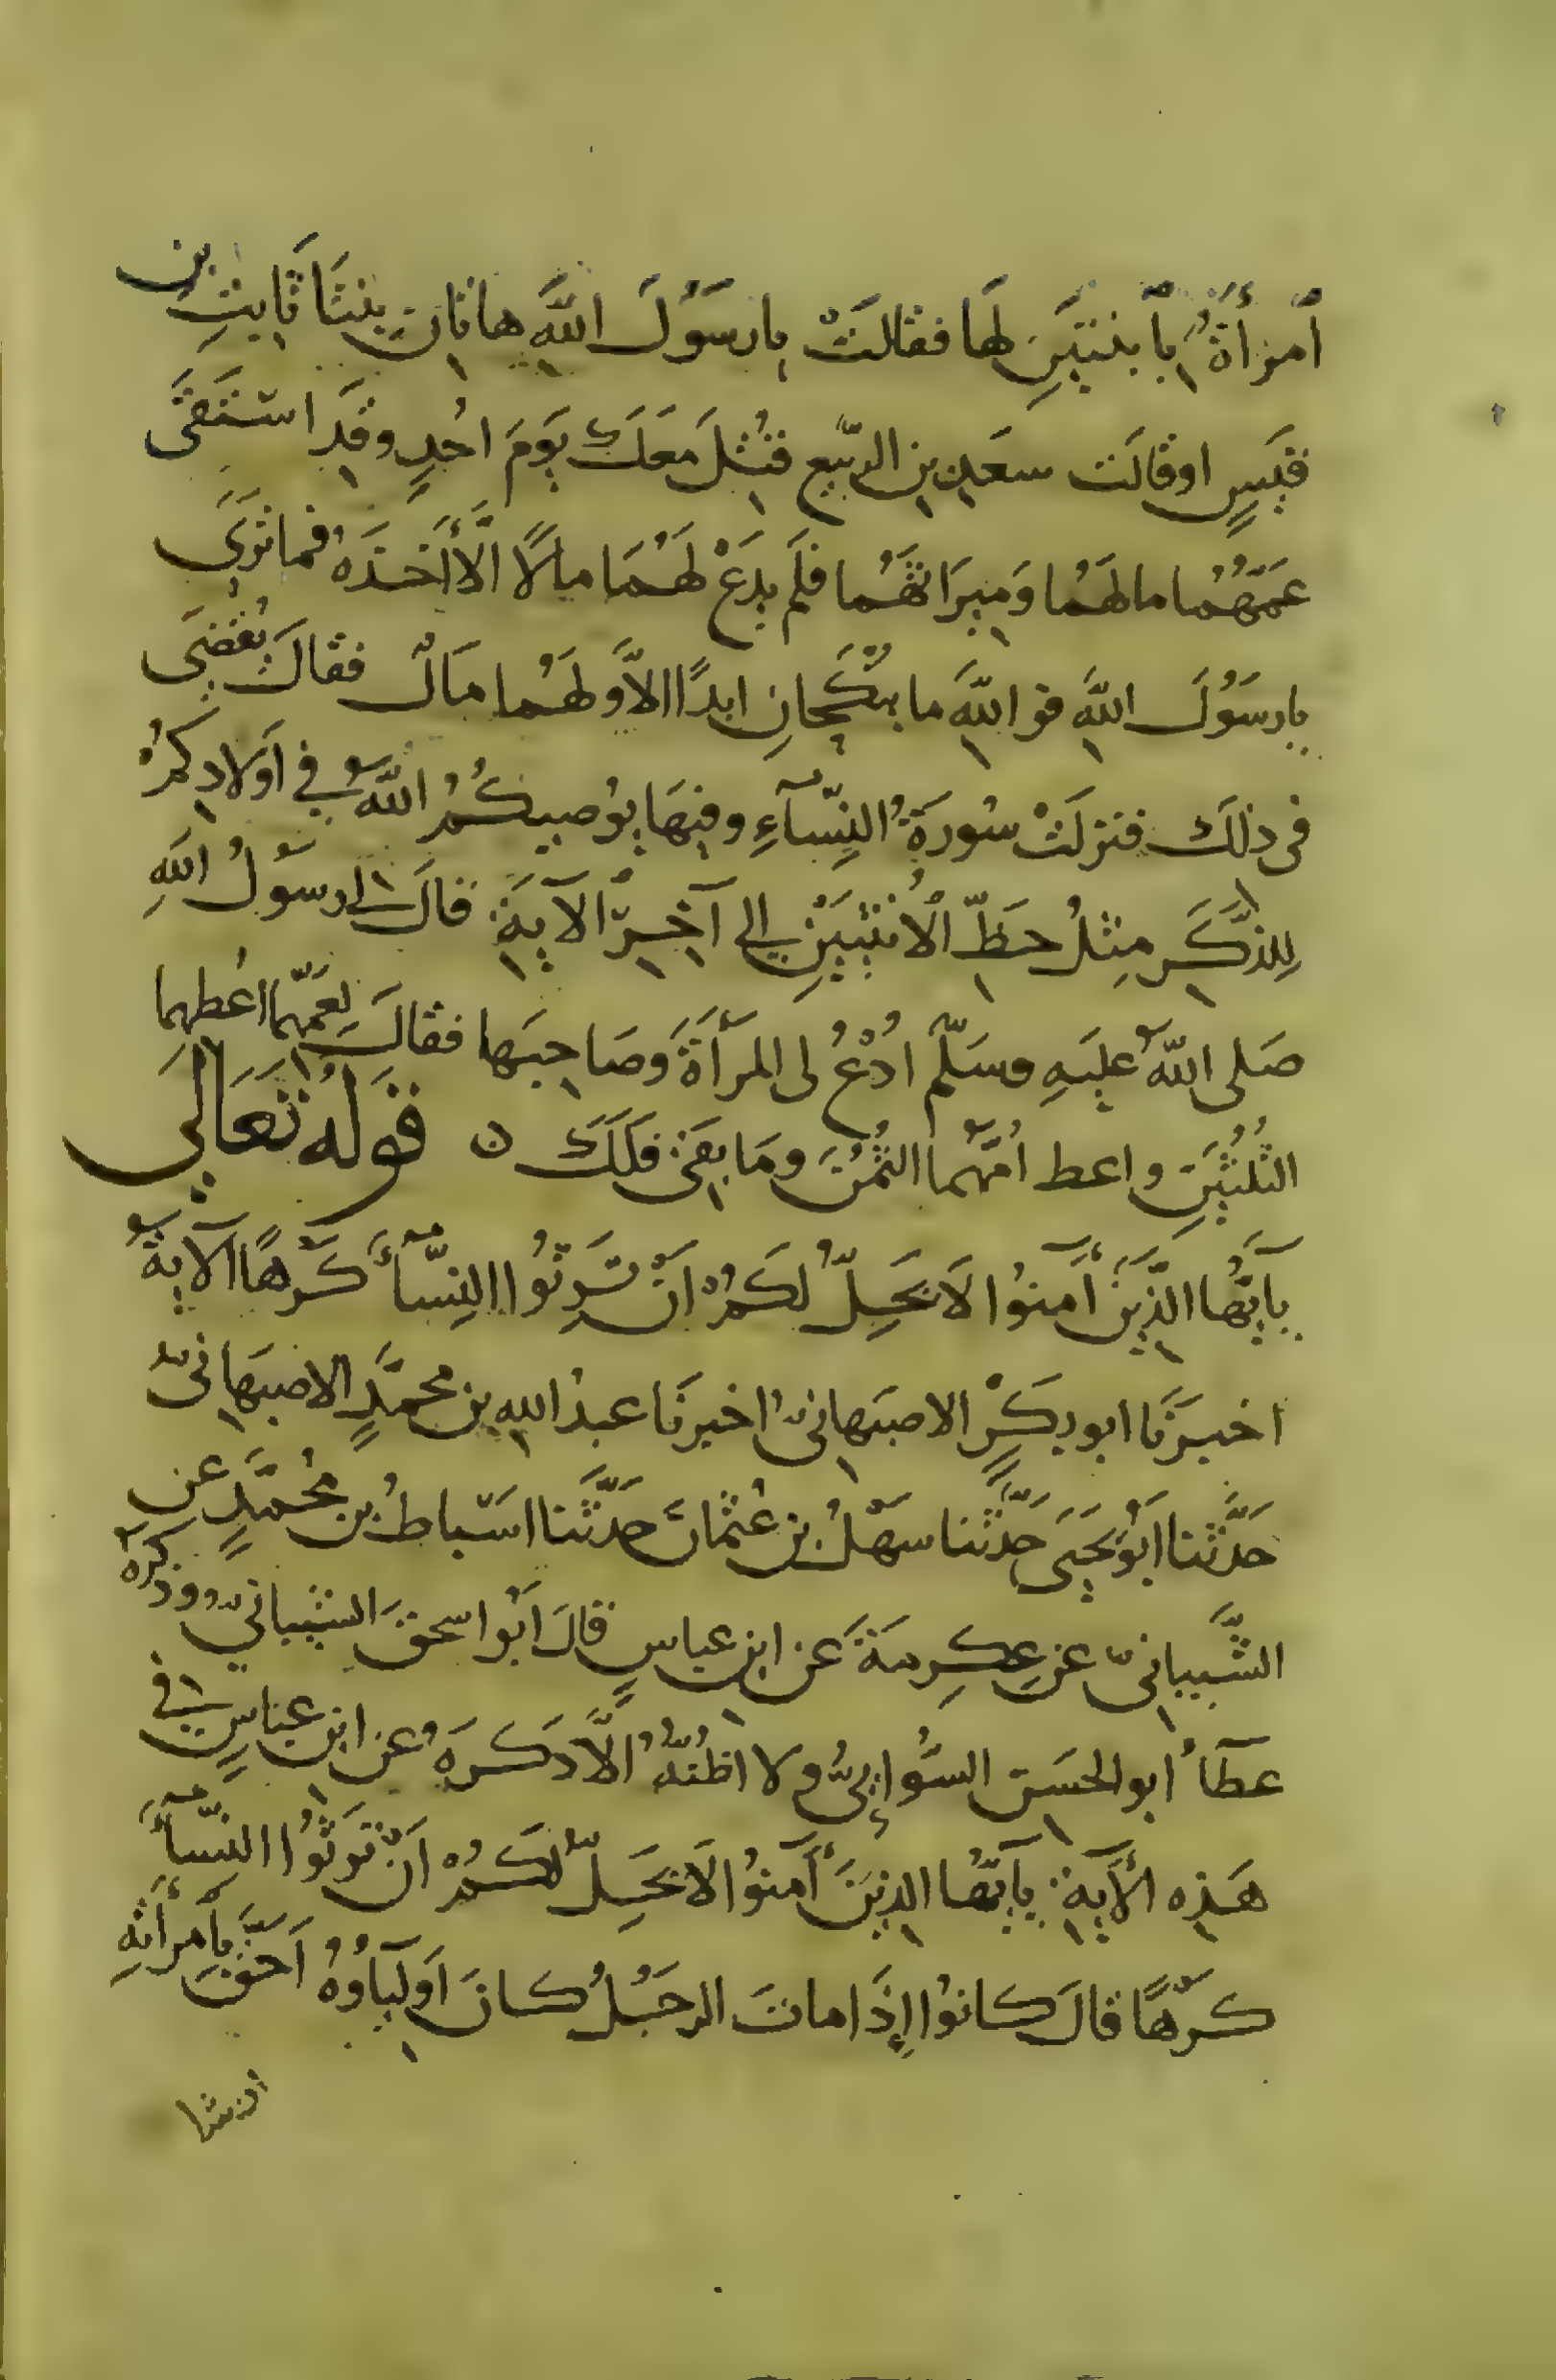 ٱمرأَةٌ بٱبنتَيَنِ لَهَا فقالَتْ يا رسَوُلَ اللَّهِ هاتانِ بِنتَا ثَابِتِ بن
قيَسٍ او قالَت سعَدِ بنِ الرّبيعِ قتُلَ معَكَ يوَمَ احُدٍ وقَدِ استَفَى
عمَّهُمُا مالهَمُا وَميرَاثهَمُا فلَم يدَعْ لهَمُا مالًا الَّا أَخَذَهُ فما ترَى
يا رسَوُلَ اللَّهِ فو اللَّهِ ما ينُكَحانِ ابدًا الاَّ ولهَمُا مَالٌ فقالَ يقُضَى
فى ذلكَ فنزلَتْ سُورَةُ النِّسآءِ وفيهَا يوُصيكُمُ اللَّهُ في اَولادِكمُْ
لِلذَّكَرِ مِثلُ حظِّ الْانُثَيَيْنِ إلى آخِرِ الآيَةِ قالَ لى رسوُلُ اللَّهِ
صَلى اللَّهُ عليَهِ وسَلّم ادُعُْ لى المرأَةَ وَصَاحِبَها فقالَ لِعَمِّهِما اعُطِهِما
الثُلُثيَنِ واعط امُّهَمُا الثُمُنَ ومَا بقَى فلَكَ ن قَولهُ تعَالَى
يآ أيُّها الَّذينَ آمَنوُا لَا يحَلِّ لُكمُْ اَنْ ترَثِوُا النِّسآءَ كَرْهًا الآيَةَ
اخبرَنَا ابو بكَرٍْ الاصبَهانىُّ اخبرنَا عبدُ اللهِ بن محمَّدٍ الاصبَهانىُّ
حَدَّثنا ابَوُ يحَيَى حَدَّثنا سهَلُ بن عُثمانَ حَدَّثَنا اسَباطُ بن محُمَّدٍ عن
الشَّيبانىّ عن عِكرِمَةَ عَن ابنِ عباسٍ قالَ ابَوُ اسحقَ الشيبانيُّ وذكرَهُ
عطَآءٌ ابو الحسَنِ السُّوائِىُّ ولا اظُنُّهُ الَّا ذكَرَهُ عن ابنِ عباسٍ في
هَذِه الْآيَةِ يآ أيُّها الذينَ آمَنوُا لَا يحَلِّ لُكمُْ اَنْ ترَثِوُا النِّسآءَ
كرَهًا قالَ كانوُا إِذَا ماتَ الرجَلُ كانَ اَوليآؤُهُ اَحَقَّ بٱمرأَتِهِ
ان شا